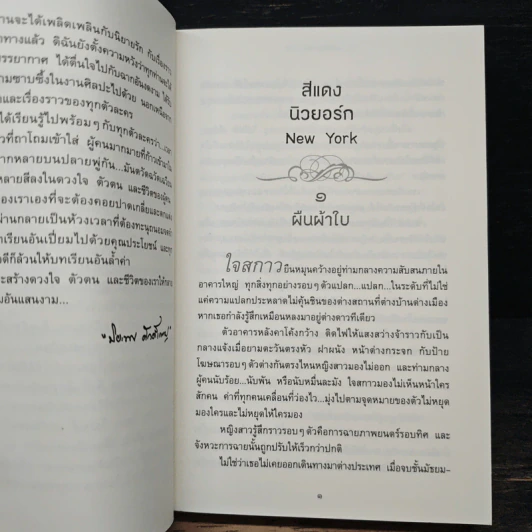 านจะได้เพลิดเพลินกับนิยายรัก กับเรื่องราว
าทางแล้ว ดิฉันยังตั้งความหวังว่าทุกท่าน
รรยากาศ ได้ตื่นใจไปกับฉากอันงดงาม ได้
ามซาบซึ้งในงานศิลปะไปด้วย นอกเหนือจาก
และเรื่องราวของทุกตัวละคร
ได้เรียนรู้ไปพร้อมๆ กับทุกตัวละครว่า...
วที่ถาโถมเข้าใส่ ผู้คนมากมายที่ก้าวเข้ามาใน
ากหลายบนปลายพู่กัน...
หลายสีลงในดวงใจ ตัวตน และชีวิตของผู้คน
องเราเองที่จะต้องคอยปาดเกลี่ยและตกแต่ง
ผ่านกลายเป็นห้วงเวลาที่ต้องทะนุถนอม
เรียนอันเปี่ยมไปด้วยคุณประโยชน์ และทุก
วดีก็ล้วนให้บทเรียนอันล้ำค่า
ะสร้างดวงใจ ตัวตน และชีวิตของเราให้กลาย
มอันแสนงาม...
สีแดง
นิวยอร์ก
New York
๑
ผืนผ้าใบ
ใจสกาวยืนหมุนคว้างอยู่ท่ามกลางความสับสนภายใน
อาคารใหญ่ ทุกสิ่งทุกอย่างรอบๆ ตัวแปลก...แปลก...ในระดับที่ไม่ใช่
แค่ความแปลกประหลาดไม่คุ้นชินของต่างสถานที่ต่างบ้านต่างเมือง
หากเธอกำลังรู้สึกเหมือนหลงมาอยู่ต่างดาวทีเดียว
ตัวอาคารหลังคาโค้งกว้าง ติดไฟให้แสงสว่างจ้าราวกับเป็น
กลางแจ้งเมื่อยามตะวันตรงหัว ฝาผนัง หน้าต่างกระจก กับป้าย
โฆษณารอบๆ ตัวต่างกันตรงไหนหญิงสาวมองไม่ออก และท่ามกลาง
ผู้คนนับร้อย...นับพัน หรือนับหมื่นละมัง ใจสกาวมองไม่เห็นหน้าใคร
สักคน ค่าที่ทุกคนเคลื่อนที่ว่องไว...มุ่งไปตามจุดหมายของตัวไม่หยุด
มองใครและไม่หยุดให้ใครมอง
หญิงสาวรู้สึกราวรอบๆ ตัวคือการฉายภาพยนตร์รอบทิศ และ
จังหวะการฉายนั้นถูกปรับให้เร็วกว่าปกติ
ไม่ใช่ว่าเธอไม่เคยออกเดินทางมาต่างประเทศ เมื่อจบชั้นมัธยม-
๑